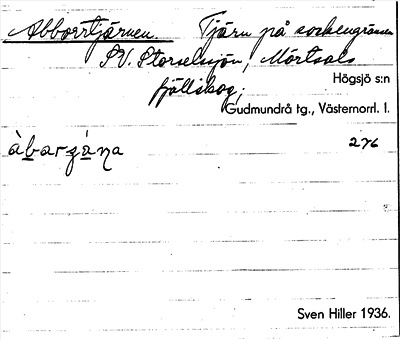 Abborrtjärnen. Tjärn på sockengränsen
S.V. Storselsjön, Mörtsals
fjällskog;
Högsjö s:n
Gudmundrå tg., Västernorrl. l.
àbarʒána 276
Sven Hiller 1936.